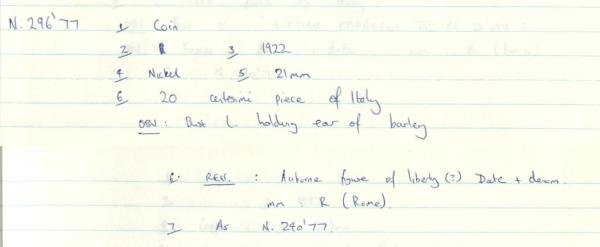 N. 296'77 1 Coin
2 1 3 1922
4 Nickel 5 21mm
6 20 centesimi piece of Italy
OBV: Bust L. holding ear of barley
6. REV. : Airborne figure of liberty (?) Date + denom.
mm R (Rome).
7 As N. 290'77.